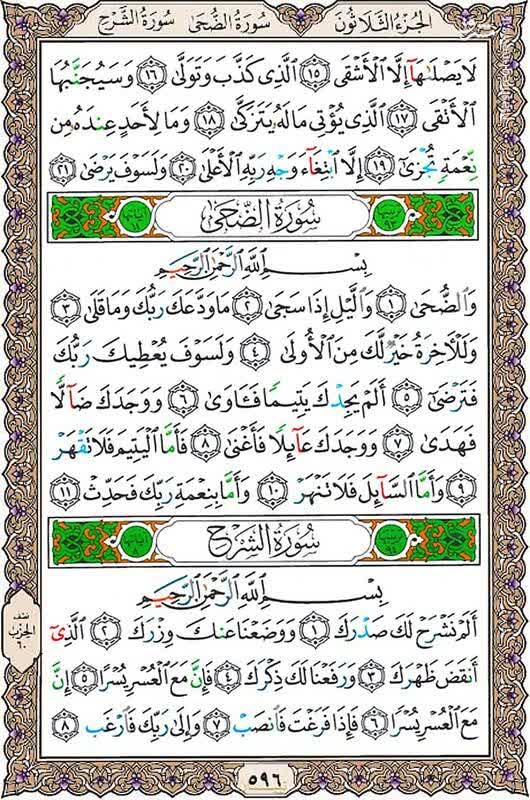 الجُزءُ الثَّلاثُون سُورَةُ الضُّحَى سُورَةُ الشَّرْحِ
لَا يَصْلَىٰهَآ إِلَّا ٱلْأَشْقَى ١٥ ٱلَّذِى كَذَّبَ وَتَوَلَّىٰ ١٦ وَسَيُجَنَّبُهَا
ٱلْأَتْقَى ١٧ ٱلَّذِى يُؤْتِى مَالَهُۥ يَتَزَكَّىٰ ١٨ وَمَا لِأَحَدٍ عِندَهُۥ مِن
نِّعْمَةٍ تُجْزَىٰٓ ١٩ إِلَّا ٱبْتِغَآءَ وَجْهِ رَبِّهِ ٱلْأَعْلَىٰ ٢٠ وَلَسَوْفَ يَرْضَىٰ ٢١
سُورَةُ الضُّحَى
بِسْمِ ٱللَّهِ ٱلرَّحْمَٰنِ ٱلرَّحِيمِ
وَٱلضُّحَىٰ ١ وَٱلَّيْلِ إِذَا سَجَىٰ ٢ مَا وَدَّعَكَ رَبُّكَ وَمَا قَلَىٰ ٣
وَلَلْءَاخِرَةُ خَيْرٌ لَّكَ مِنَ ٱلْأُولَىٰ ٤ وَلَسَوْفَ يُعْطِيكَ رَبُّكَ
فَتَرْضَىٰٓ ٥ أَلَمْ يَجِدْكَ يَتِيمًا فَـَٔاوَىٰ ٦ وَوَجَدَكَ ضَآلًّا
فَهَدَىٰ ٧ وَوَجَدَكَ عَآئِلًا فَأَغْنَىٰ ٨ فَأَمَّا ٱلْيَتِيمَ فَلَا تَقْهَرْ
٩ وَأَمَّا ٱلسَّآئِلَ فَلَا تَنْهَرْ ١٠ وَأَمَّا بِنِعْمَةِ رَبِّكَ فَحَدِّثْ ١١
سُورَةُ الشَّرْحِ
بِسْمِ ٱللَّهِ ٱلرَّحْمَٰنِ ٱلرَّحِيمِ
أَلَمْ نَشْرَحْ لَكَ صَدْرَكَ ١ وَوَضَعْنَا عَنكَ وِزْرَكَ ٢ ٱلَّذِىٓ
أَنقَضَ ظَهْرَكَ ٣ وَرَفَعْنَا لَكَ ذِكْرَكَ ٤ فَإِنَّ مَعَ ٱلْعُسْرِ يُسْرًا ٥ إِنَّ
مَعَ ٱلْعُسْرِ يُسْرًا ٦ فَإِذَا فَرَغْتَ فَٱنصَبْ ٧ وَإِلَىٰ رَبِّكَ فَٱرْغَب ٨
نصف
الحزب
٦٠
٥٩٦